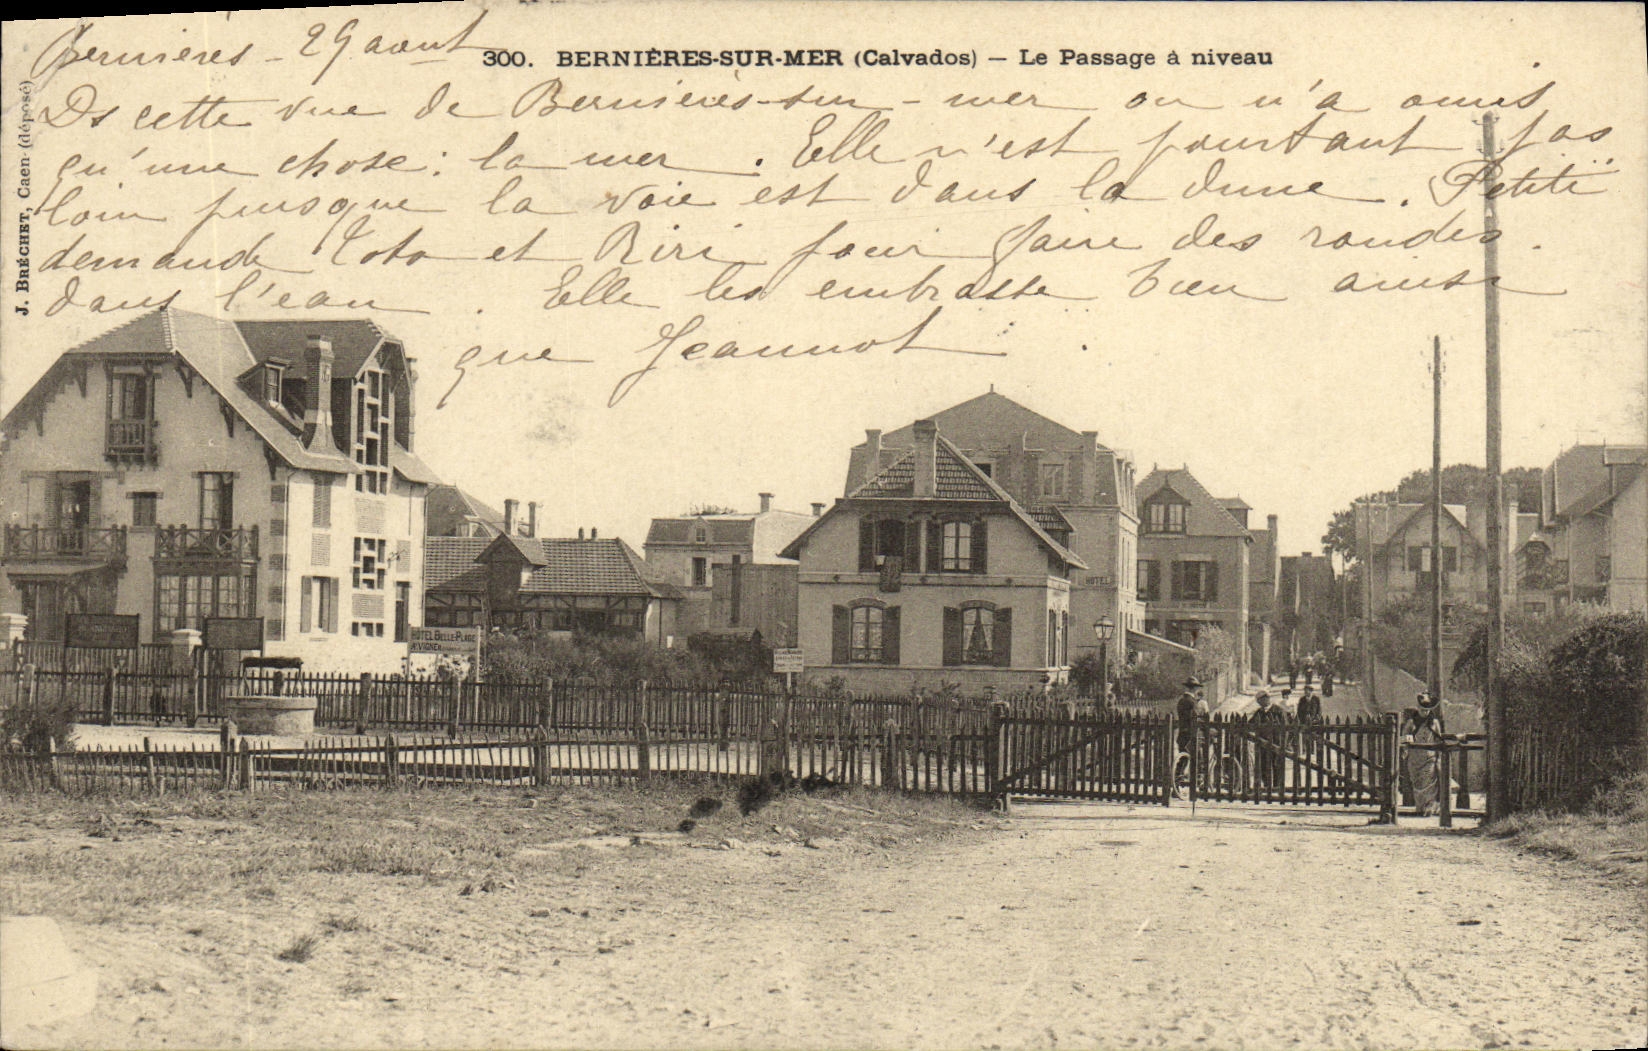 Bernières - 29 aout
300. BERNIÈRES-SUR-MER (Calvados) — Le Passage à niveau
Ds cette vue de Bernières-sur-mer on n'a omis
qu'une chose : la mer . Elle n'est pourtant pas
loin puisque la voie est dans la dune . Petite
demande Toto et Riri pour faire des rondes
dans l'eau . Elle les embrasse bien ainsi
que Jeannot .
J. BRÉCHET, Caen (déposé)
HOTEL
HOTEL BELLE-PLAGE